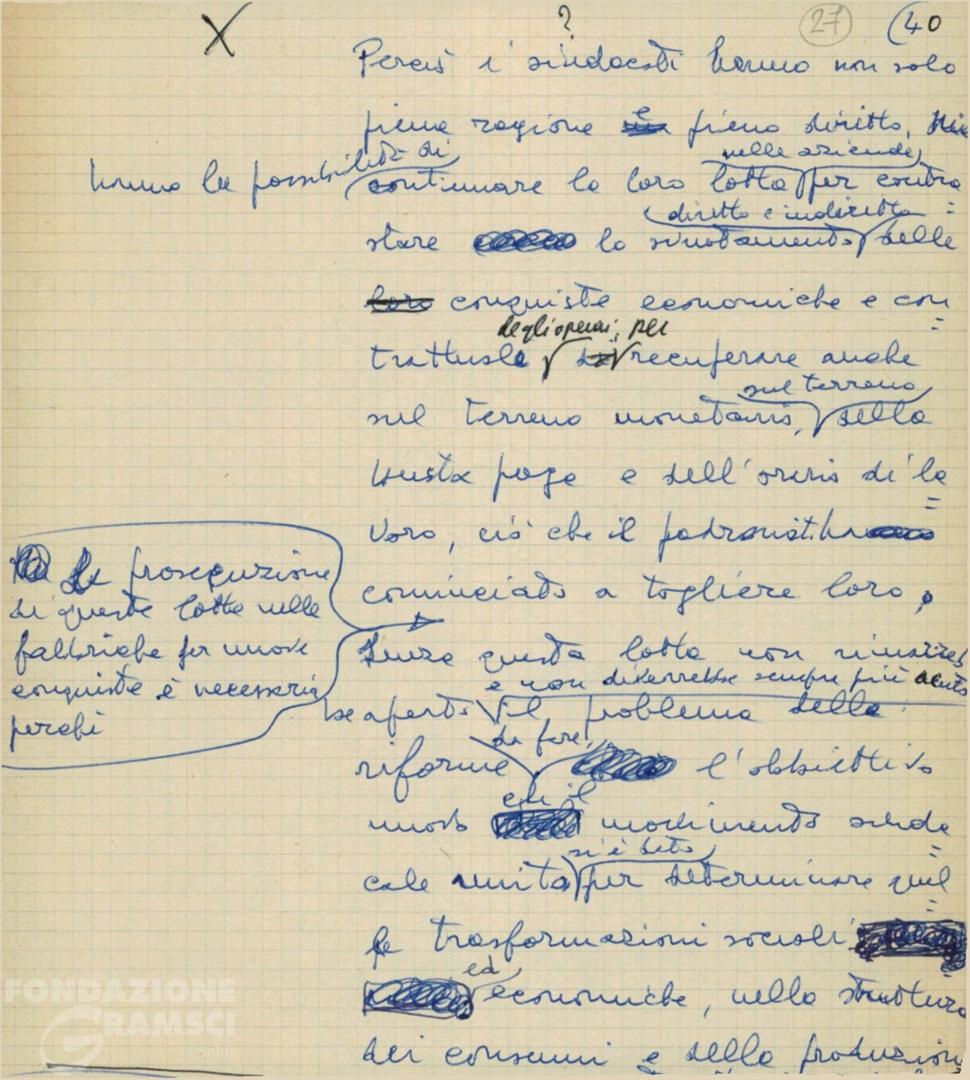 X
?
27
(40
Perciò i sindacati hanno non solo
piena ragione e pieno diritto,
hanno la possibilità di
nelle aziende,
continuare la loro lotta per contra=
diretto e indiretto
stare lo svuotamento delle
loro conquiste economiche e con=
degli operai, per
trattuale recuperare anche
sul terreno
sul terreno monetario, della
busta paga e dell'orario di la=
voro, ciò che il padronat. ha
cominciato a togliere loro.
La prosecuzione
di queste lotte nelle
fabbriche per nuove
conquiste è necessaria
perché
Senza questa lotta non rimarreb
e non diverrebbe sempre più acuto
be aperto il problema delle
da fare,
riforme l'obbiettivo
cui il
nuovo movimento sinda=
si è dato
cale unita per determinare quel=
le trasformazioni sociali
ed
economiche, nella struttura
dei consumi e della produzion
FONDAZIONE
GRAMSCI